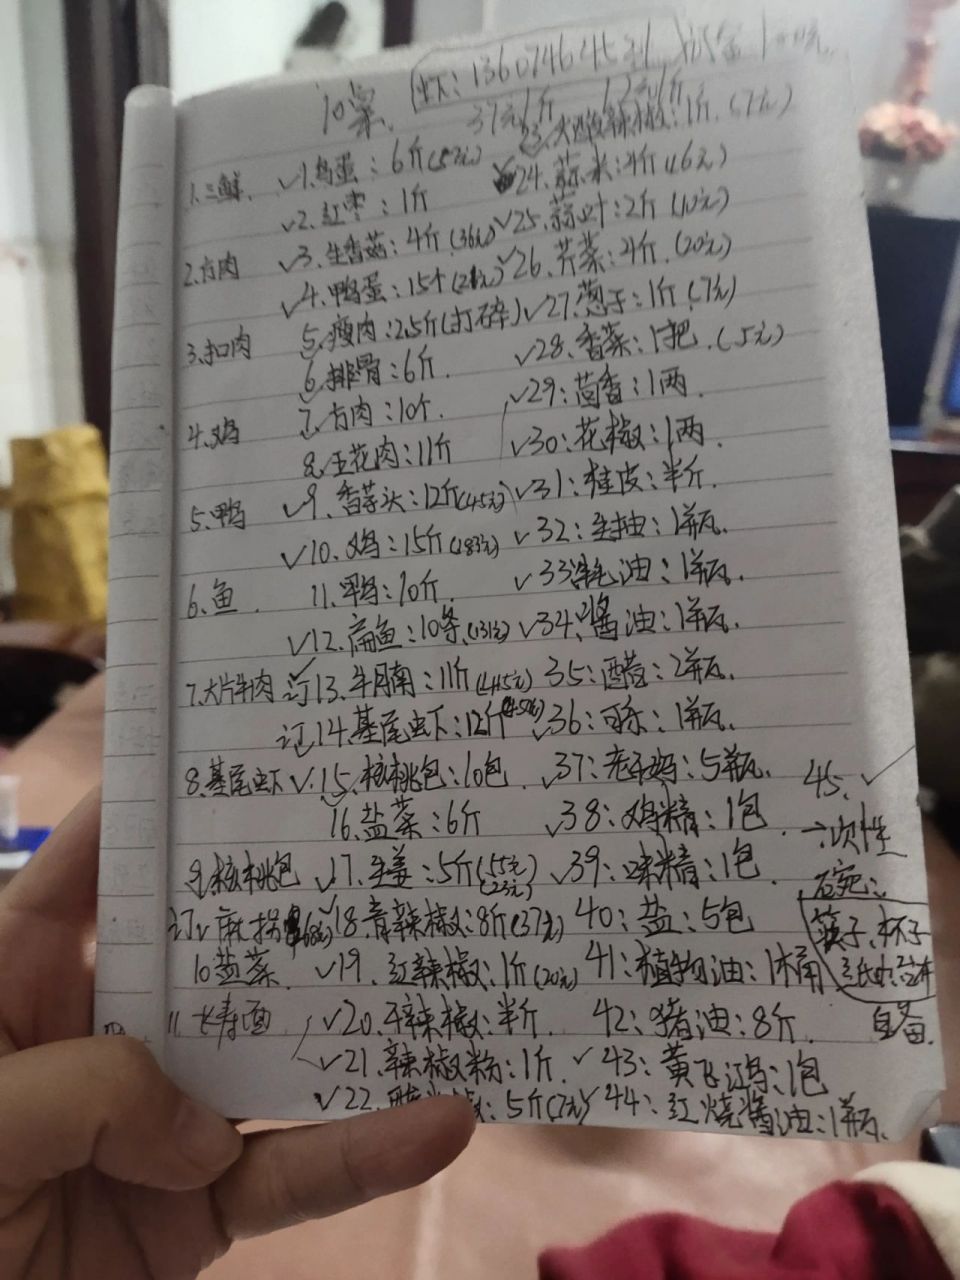 10桌.
虾: 13607464531
37元1斤 12元1斤
1.三鲜.
2.方肉
3.扣肉
4.鸡
5.鸭
6.鱼.
7.大片牛肉
8.基尾虾
9.核桃包
订
10盐菜.
11.长寿面
✓1.鸡蛋: 6斤
✓2.红枣: 1斤
✓3.生香菇: 4斤(36元)
✓4.鸭蛋: 15个
5.瘦肉: 2.5斤(打碎)
6.排骨: 6斤.
7.方肉: 10个.
8.五花肉: 11斤
✓9.香芋头: 12斤(45元)
✓10.鸡: 15斤(183元)
11.鸭: 10斤.
✓12.扁鱼: 10条(131元)
订13.牛腩: 11斤(445元)
订14.基尾虾: 12斤
✓15.核桃包: 10包
16.盐菜: 6斤
✓17.生姜: 5斤(55元)
(23元)
✓18.青辣椒: 8斤(37元)
✓19.红辣椒: 1斤(20元)
✓20.干辣椒: 半斤.
✓21.辣椒粉: 1斤.
✓22. 5斤(7元)
23.大酸辣椒: 1斤.(7元)
24.蒜米: 4斤(16元)
✓25.蒜叶: 2斤(10元)
✓26.芹菜: 4斤.(20元)
✓27.葱子: 1斤(7元)
✓28.香菜: 1把.(5元)
✓29: 茴香: 1两.
✓30: 花椒: 1两.
✓31: 桂皮: 半斤.
✓32: 生抽: 1瓶.
✓33: 油: 1瓶.
✓34: 酱油: 1瓶.
35: 醋: 2瓶.
✓36: 可乐: 1瓶.
✓37: 老干妈: 5瓶.
✓38: 鸡精: 1包.
✓39: 味精: 1包
40: 盐: 5包
41: 植物油: 1桶
42: 猪油: 8斤.
✓43: 黄飞鸿: 1包
✓44: 红烧酱油: 1瓶.
45. ✓
一次性
碗:
筷子、杯子
自备.